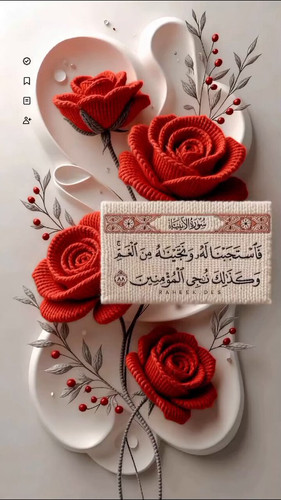 سُورَةُ الأَنْبِيَاء
فَٱسْتَجَبْنَا لَهُۥ وَنَجَّيْنَٰهُ مِنَ ٱلْغَمِّ ۚ
وَكَذَٰلِكَ نُۨجِى ٱلْمُؤْمِنِينَ ٨٨